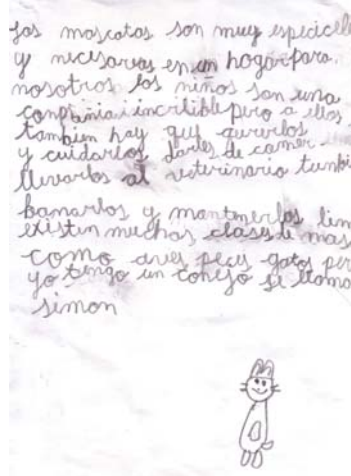 las mascotas son muy especiele
y necesarias en un hogar para
nosotros los niños son una
conpañia increible pero a ellos
tambien hay quy quererlos
y cuidarlos darles de comer
llevarlos al veterinario tanbi
bamarlos y mantenerlos lim
existen muchas clases de mas
como aves peces gatos per
yo tengo un conejo se llama
simon